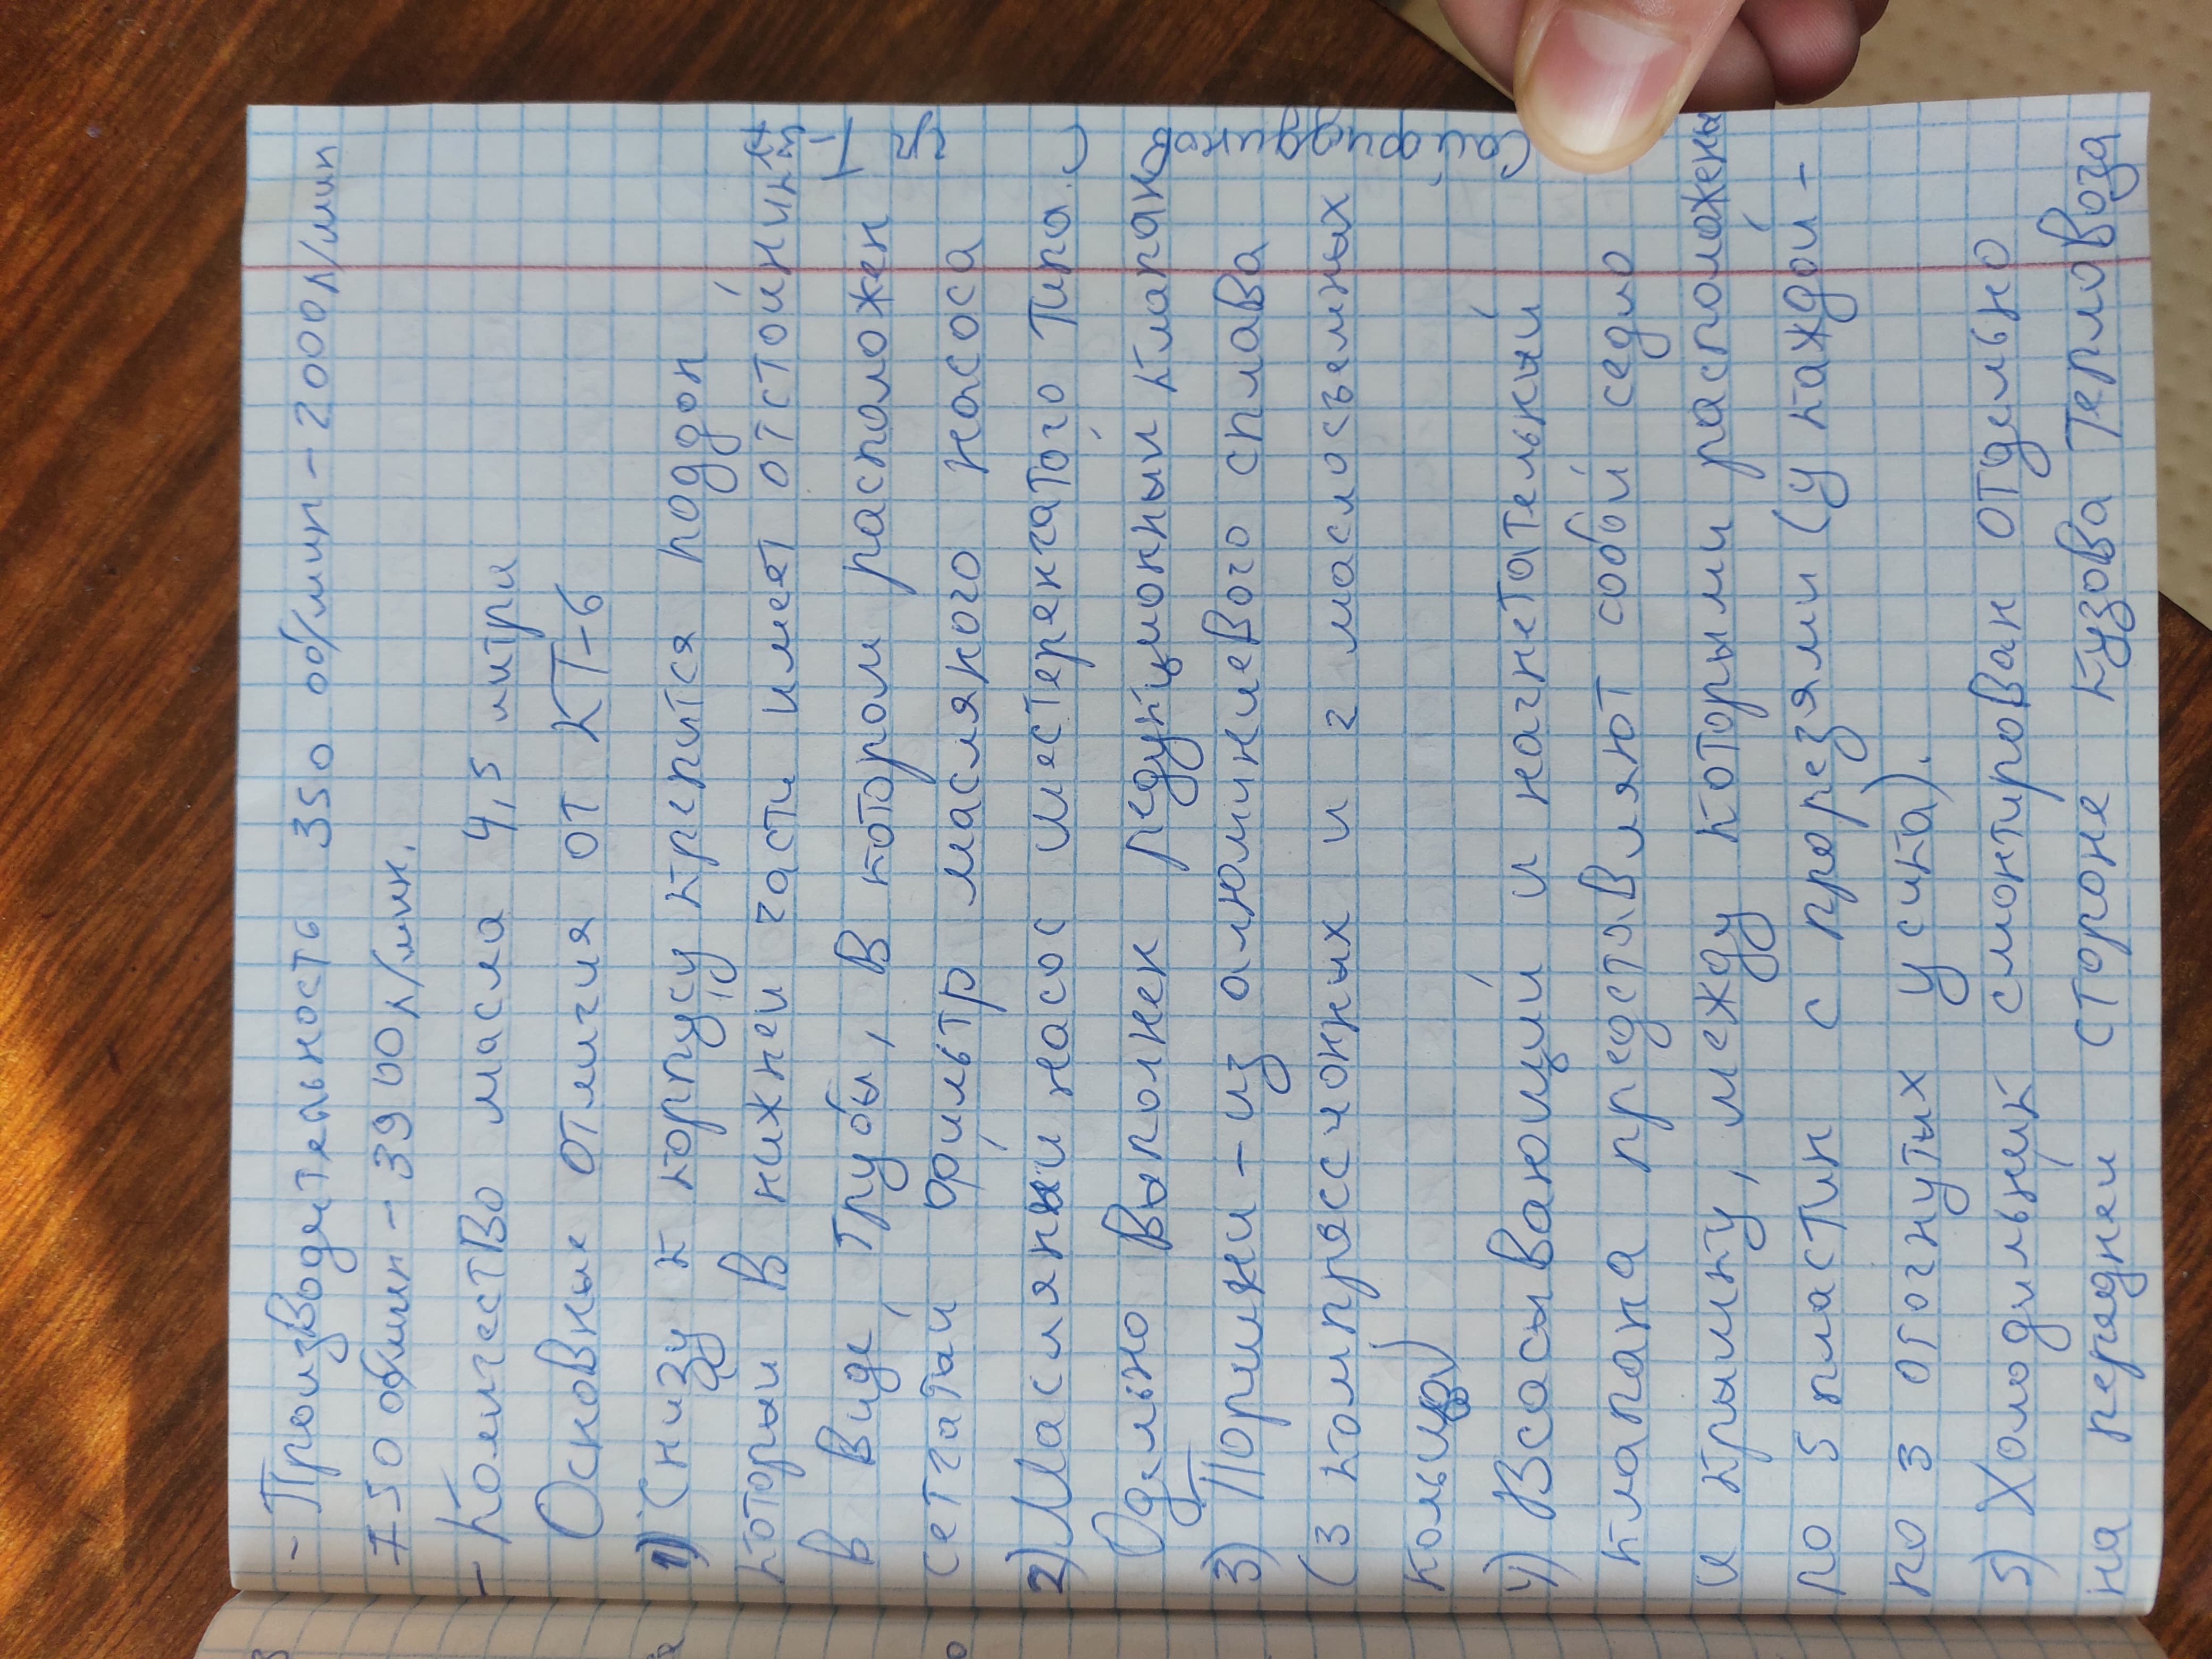 - Производительность 350 об/мин - 2000 л/мин
750 об/мин - 3900 л/мин.
- Количество масла 4,5 литри
Основные отличия от КТ-6
1) Снизу к корпусу крепится поддон
который в нижней части имеет отстойник
в виде трубы, в котором расположен
сетчатый фильтр масляного насоса
2) Масляный насос шестеренчатого типа.
Одельно выполнен редукционный клапан
3) Поршни - из алюминиевого сплава
(3 компрессчонных и 2 маслосъемных
кольца)
4) Всасывающий и нагнетательный
клапана представляют собой седло
и крышку, между которыми расположены
по 5 пластин с прорезями (у каждой -
по 3 отогнутых усика).
5) Холодильник смонтирован отдельно
на передней стороне кузова тепловоза